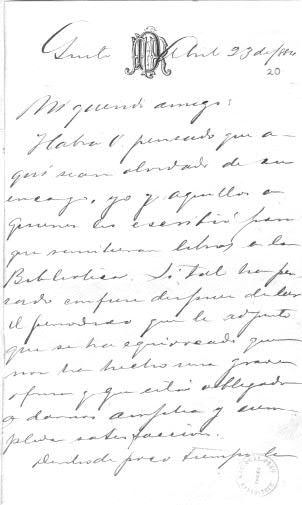 Abril 23 de 188
20
Mi querido amigo:
Habrá V. pensado que a-
quí se han olvidado de su
encargo, yo y aquellos a
quienes les escribió para
que remitieran libros a la
Biblioteca. Si tal ha pen-
sado confiese despues de leer
el periodico que le adjunto
que se ha equivocado que
nos ha hecho una grave
ofensa y que está obligado
a darnos amplia y cum-
plida satisfaccion.
Dentro de poco tiempo le